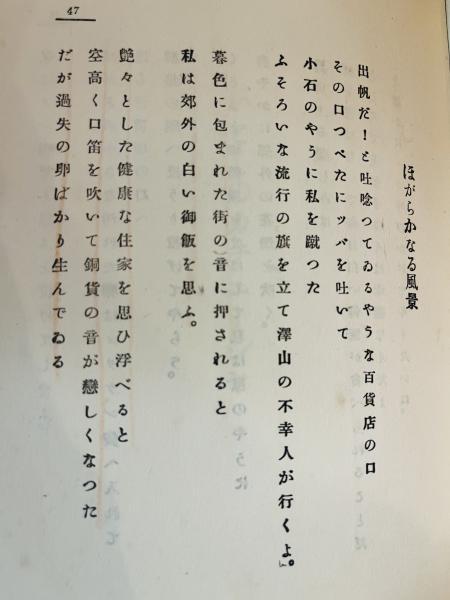 47
ほがらかなる風景
出帆だ！と吐唸つてゐるやうな百貨店の口
その口つぺたにツバを吐いて
小石のやうに私を蹴つた
ふそろいな流行の旗を立て澤山の不幸人が行くよ。
暮色に包まれた街の音に押されると
私は郊外の白い御飯を思ふ。
艶々とした健康な住家を思ひ浮べると
空高く口笛を吹いて銅貨の音が戀しくなつた
だが過失の卵ばかり生んでゐる